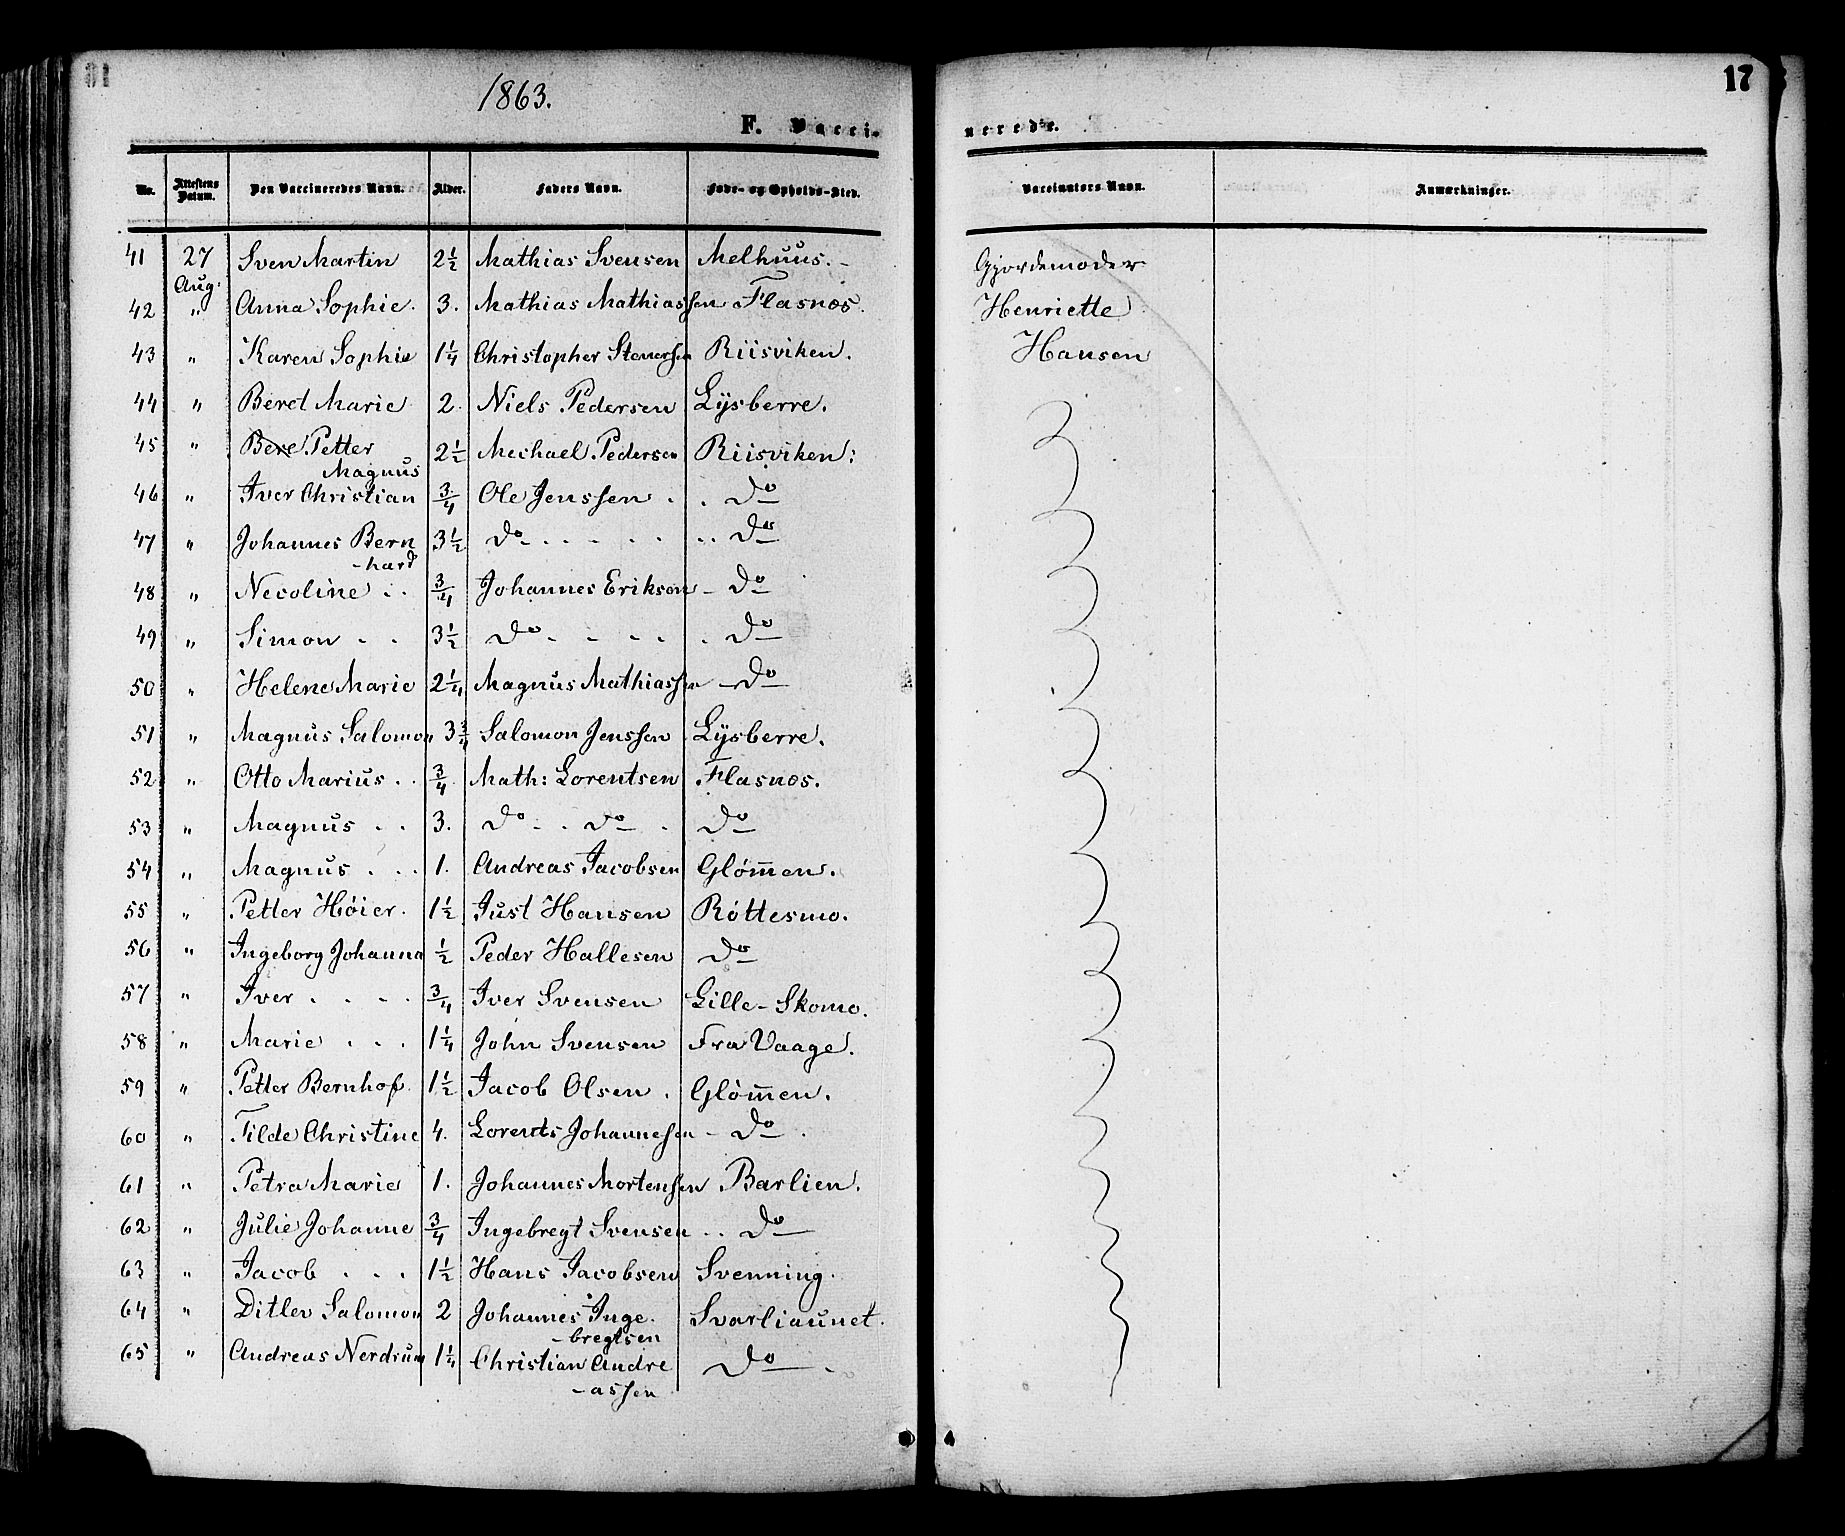 1863.
17
F. Vacci-
nerede.
No. Attestens Datum. Den Vaccineredes Navn. Alder. Faders Navn. Føde- og Opholds-Sted. Vaccinators Navn. Anmærkninger.
41 27 Aug. Sven Martin 2½ Mathias Svensen Melhuus. Gjordemoder
42 " Anna Sophie. 3. Mathias Mathiassen Flasnæs. Henriette
43 " Karen Sophie 1¼ Christopher Stenersen Riisviken. Hansen
44 " Beret Marie 2. Niels Pedersen Lysberre.
45 " Bere Petter Magnus 2½ Mechael Pedersen Riisviken:
46 " Iver Christian ¾ Ole Jenssen . . Do
47 " Johannes Bern 3½ Do . . . . . . Do
-hard
48 " Necoline . . ¾ Johannes Eriksen - Do
49 " Simon . . 3½ Do . . . . . Do
50 " Helene Marie 2¼ Magnus Mathiassen - Do
51 " Magnus Salomon 3¾ Salomon Jenssen Lysberre.
52 " Otto Marius . . ¾ Math: Lorentsen Flasnæs.
53 " Magnus . . 3. Do . . Do . Do
54 " Magnus . . . 1. Andreas Jacobsen Glom̅en.
55 " Petter Höier. 1½ Just Hansen Röttesmo.
56 " Ingeborg Johanna ½ Peder Hallesen Do
57 " Iver . . . . ¾ Iver Svensen Lille-Skomo.
58 " Marie . . . 1¼ John Svensen Fra Vaage.
59 " Petter Bernhof. 1½ Jacob Olsen . Glöm̅en.
60 " Tilde Christine 4. Lorents Johannesen - Do .
61 " Petra Marie 1. Johannes Mortensen Barlien.
62 " Julie Johanne ¾ Ingebregt Svensen . . Do
63 " Jacob . . . 1½ Hans Jacobsen Svenning.
64 " Ditlev Salomon 2 Johannes Inge. Svarliaunet.
-bregtsen
65 " Andreas Nerdrum 1¼ Christian Andre Do .
-assen